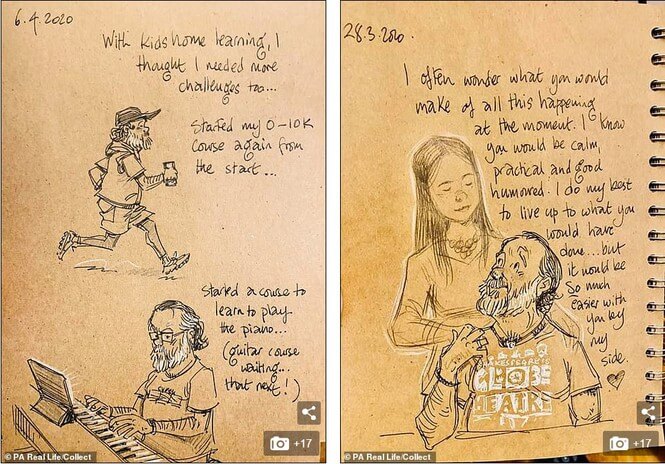 6.4.2020
With kids home learning, I
thought I needed more
challenges too...
Started my 0-10K
course again from
the start...
started a course to
learn to play
the piano...
(guitar course
waiting...
that next!)
© PA Real Life/Collect
+17
28.3.2020.
I often wonder what you would
make of all this happening
at the moment. I know
you would be calm,
practical and good
humoured. I do my best
to live up to what you
would have
done...but
it would be
so much
easier with
you by
my
side.
SHAKESPEARE'S
GLOBE
THEATRE
© PA Real Life/Collect
+17